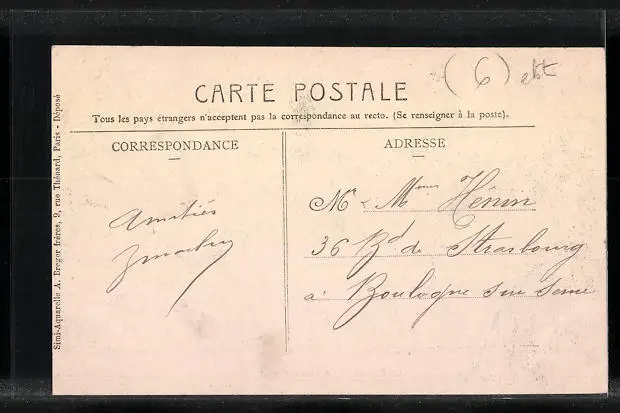 CARTE POSTALE
(6)
Tous les pays étrangers n'acceptent pas la correspondance au recto. (Se renseigner à la poste).
CORRESPONDANCE
Amitiés
ADRESSE
Mr & Mmes Hénin
36 Bd de Strasbourg
à Boulogne sur Seine
Simi-Aquarelle A. Breger frères, 9, rue Thénard, Paris - Déposé